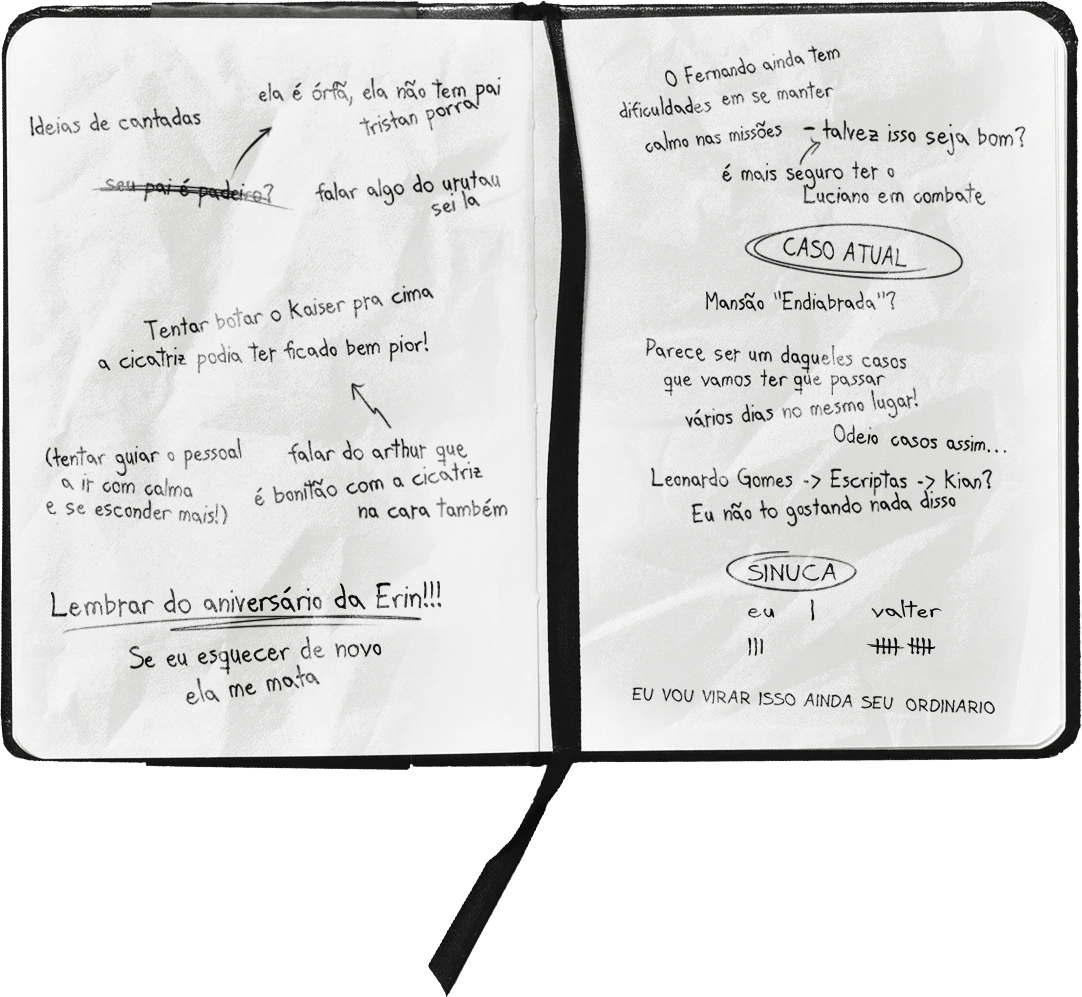 Ideias de cantadas
ela é órfã, ela não tem pai
tristan porra
seu pai é padeiro?
falar algo do urutau
sei la
Tentar botar o Kaiser pra cima
a cicatriz podia ter ficado bem pior!
(tentar guiar o pessoal
a ir com calma
e se esconder mais!)
falar do arthur que
é bonitão com a cicatriz
na cara também
Lembrar do aniversário da Erin!!!
Se eu esquecer de novo
ela me mata
O Fernando ainda tem
dificuldades em se manter
calmo nas missões - talvez isso seja bom?
é mais seguro ter o
Luciano em combate
CASO ATUAL
Mansão "Endiabrada"?
Parece ser um daqueles casos
que vamos ter que passar
vários dias no mesmo lugar!
Odeio casos assim...
Leonardo Gomes -> Escriptas -> Kian?
Eu não to gostando nada disso
SINUCA
eu | valter
||| 卌 卌
EU VOU VIRAR ISSO AINDA SEU ORDINARIO